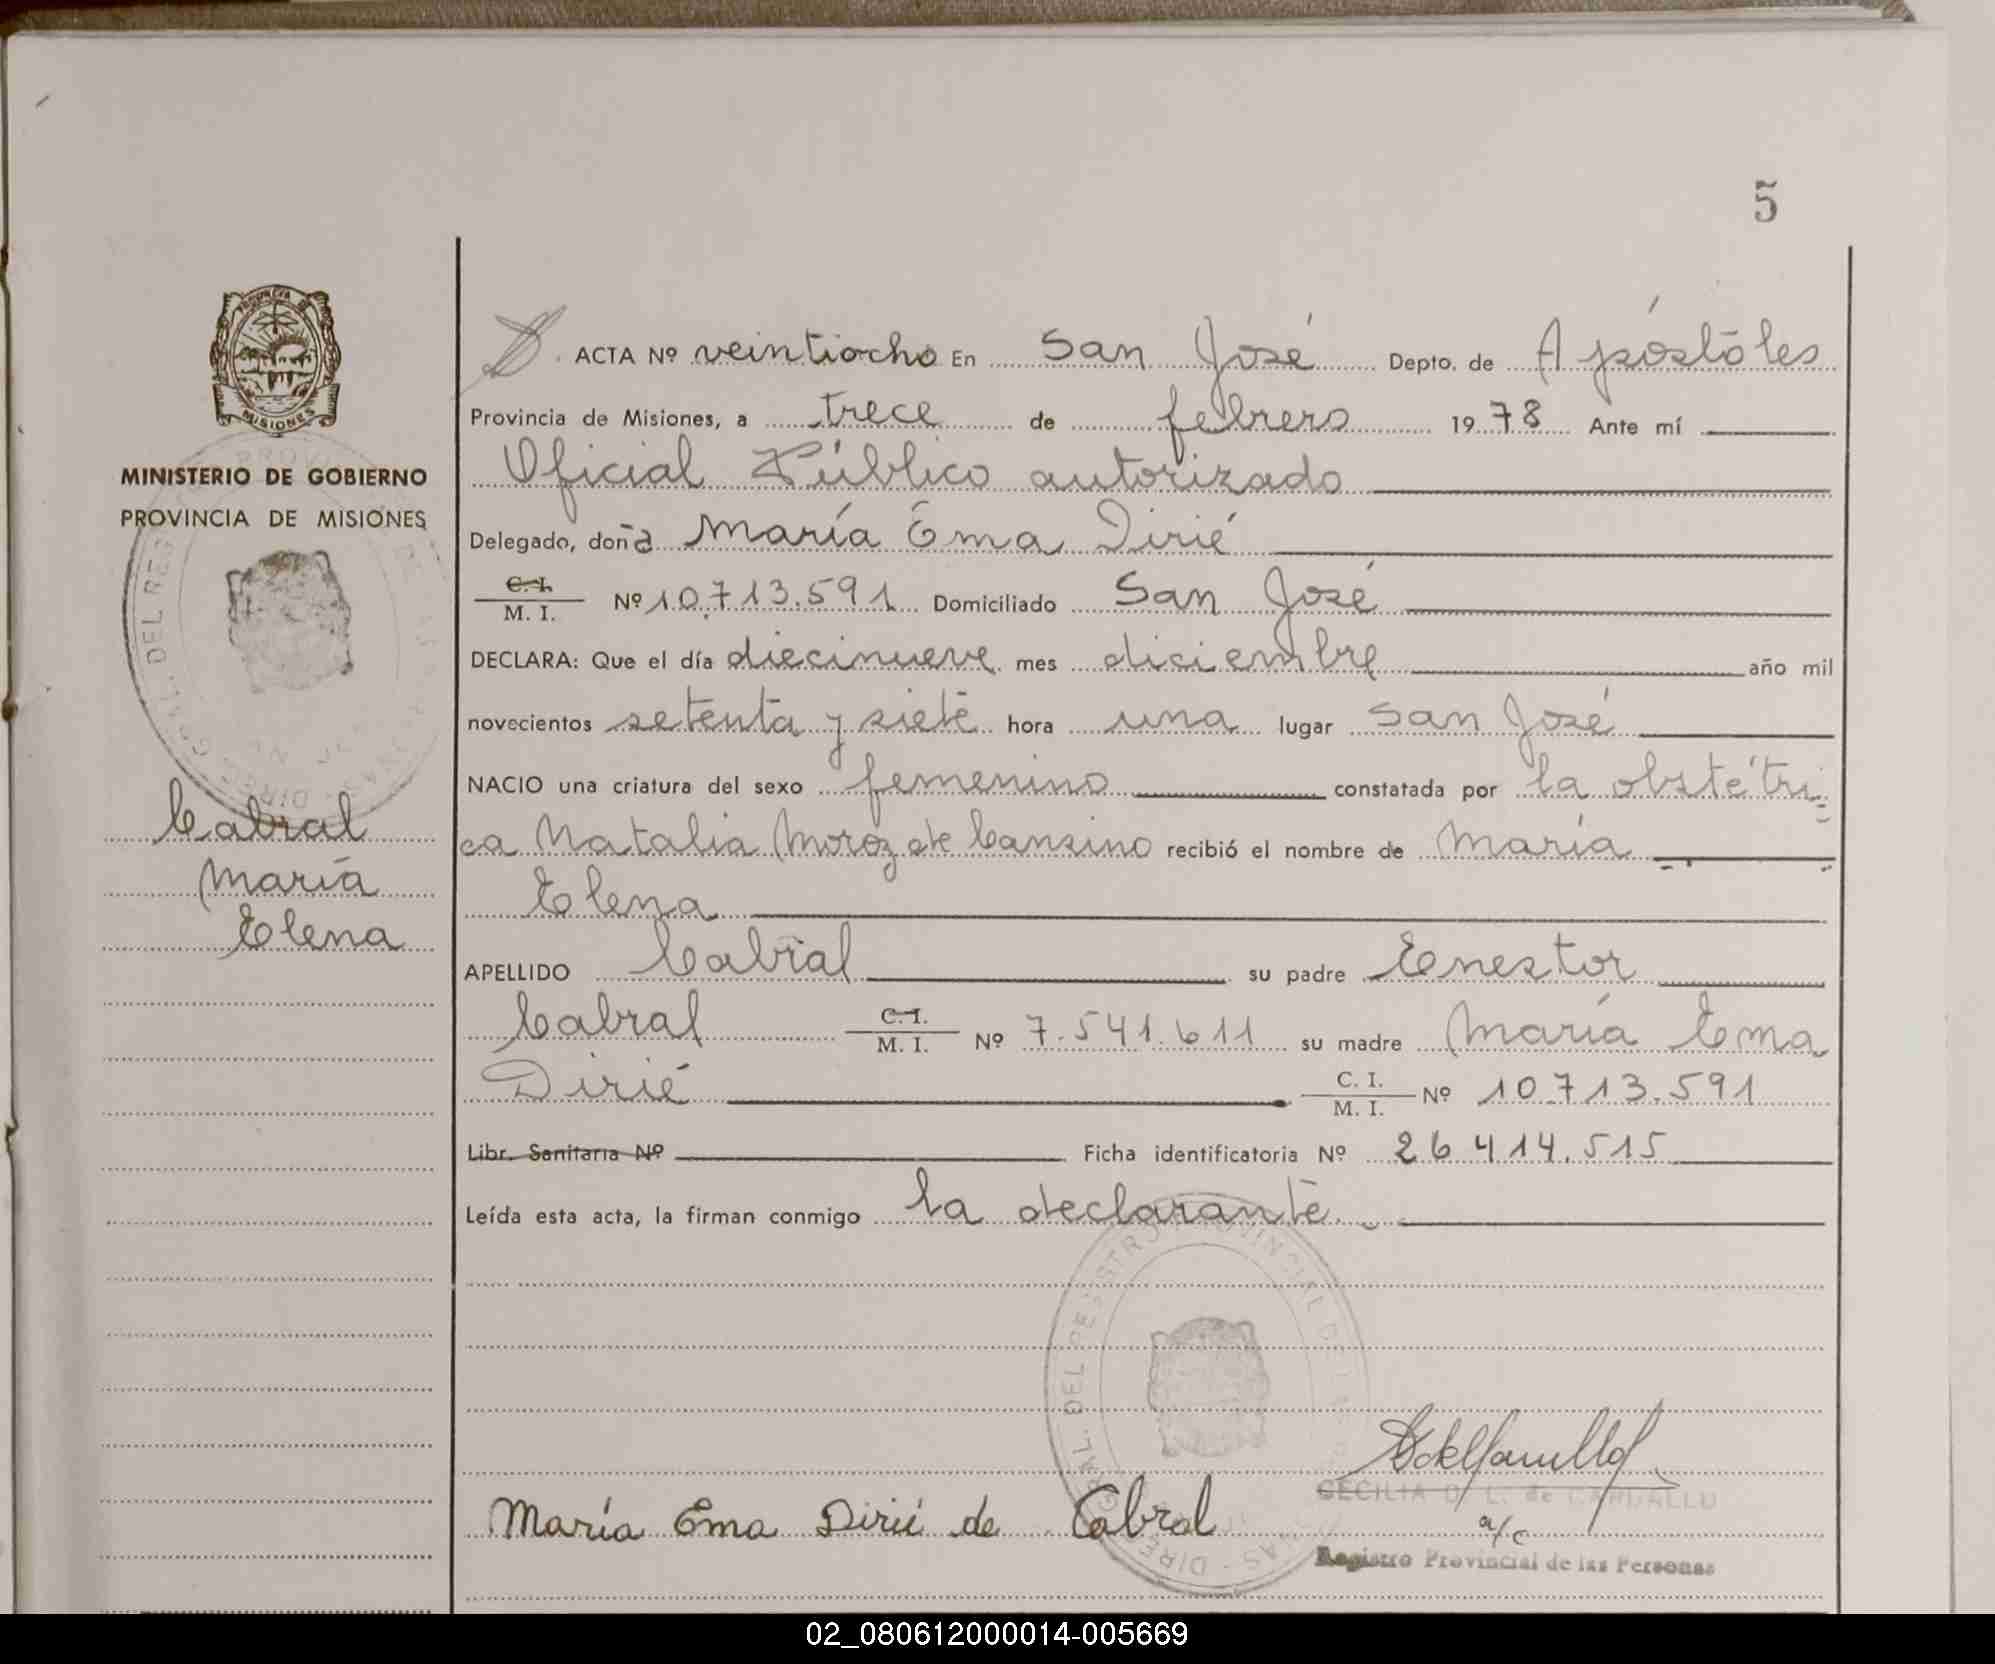 5
ACTA Nº veintiocho En San José Depto. de Apóstoles
Provincia de Misiones, a trece de febrero 1978 Ante mí
Oficial Público autorizado
Delegado, doña María Ema Dirié
C. I. M. I. Nº 10.713.591 Domiciliado San José
DECLARA: Que el día diecinueve mes diciembre año mil
novecientos setenta y siete hora una lugar San José
NACIO una criatura del sexo femenino constatada por la obstétri
ca Natalia Moroz de Cansino recibió el nombre de María
Elena
APELLIDO Cabral su padre Enestor
Cabral C. I. M. I. Nº 7.541.611 su madre María Ema
Dirié C. I. M. I. Nº 10.713.591
Libr. Sanitaria Nº Ficha identificatoria Nº 26.414.515
Leída esta acta, la firman conmigo la declarante.
María Ema Dirié de Cabral
CECILIA D. L. de CARBALLO
a/c
Registro Provincial de las Personas
PROVINCIA DE
MISIONES
MINISTERIO DE GOBIERNO
PROVINCIA DE MISIONES
Cabral
María
Elena
02_080612000014-005669